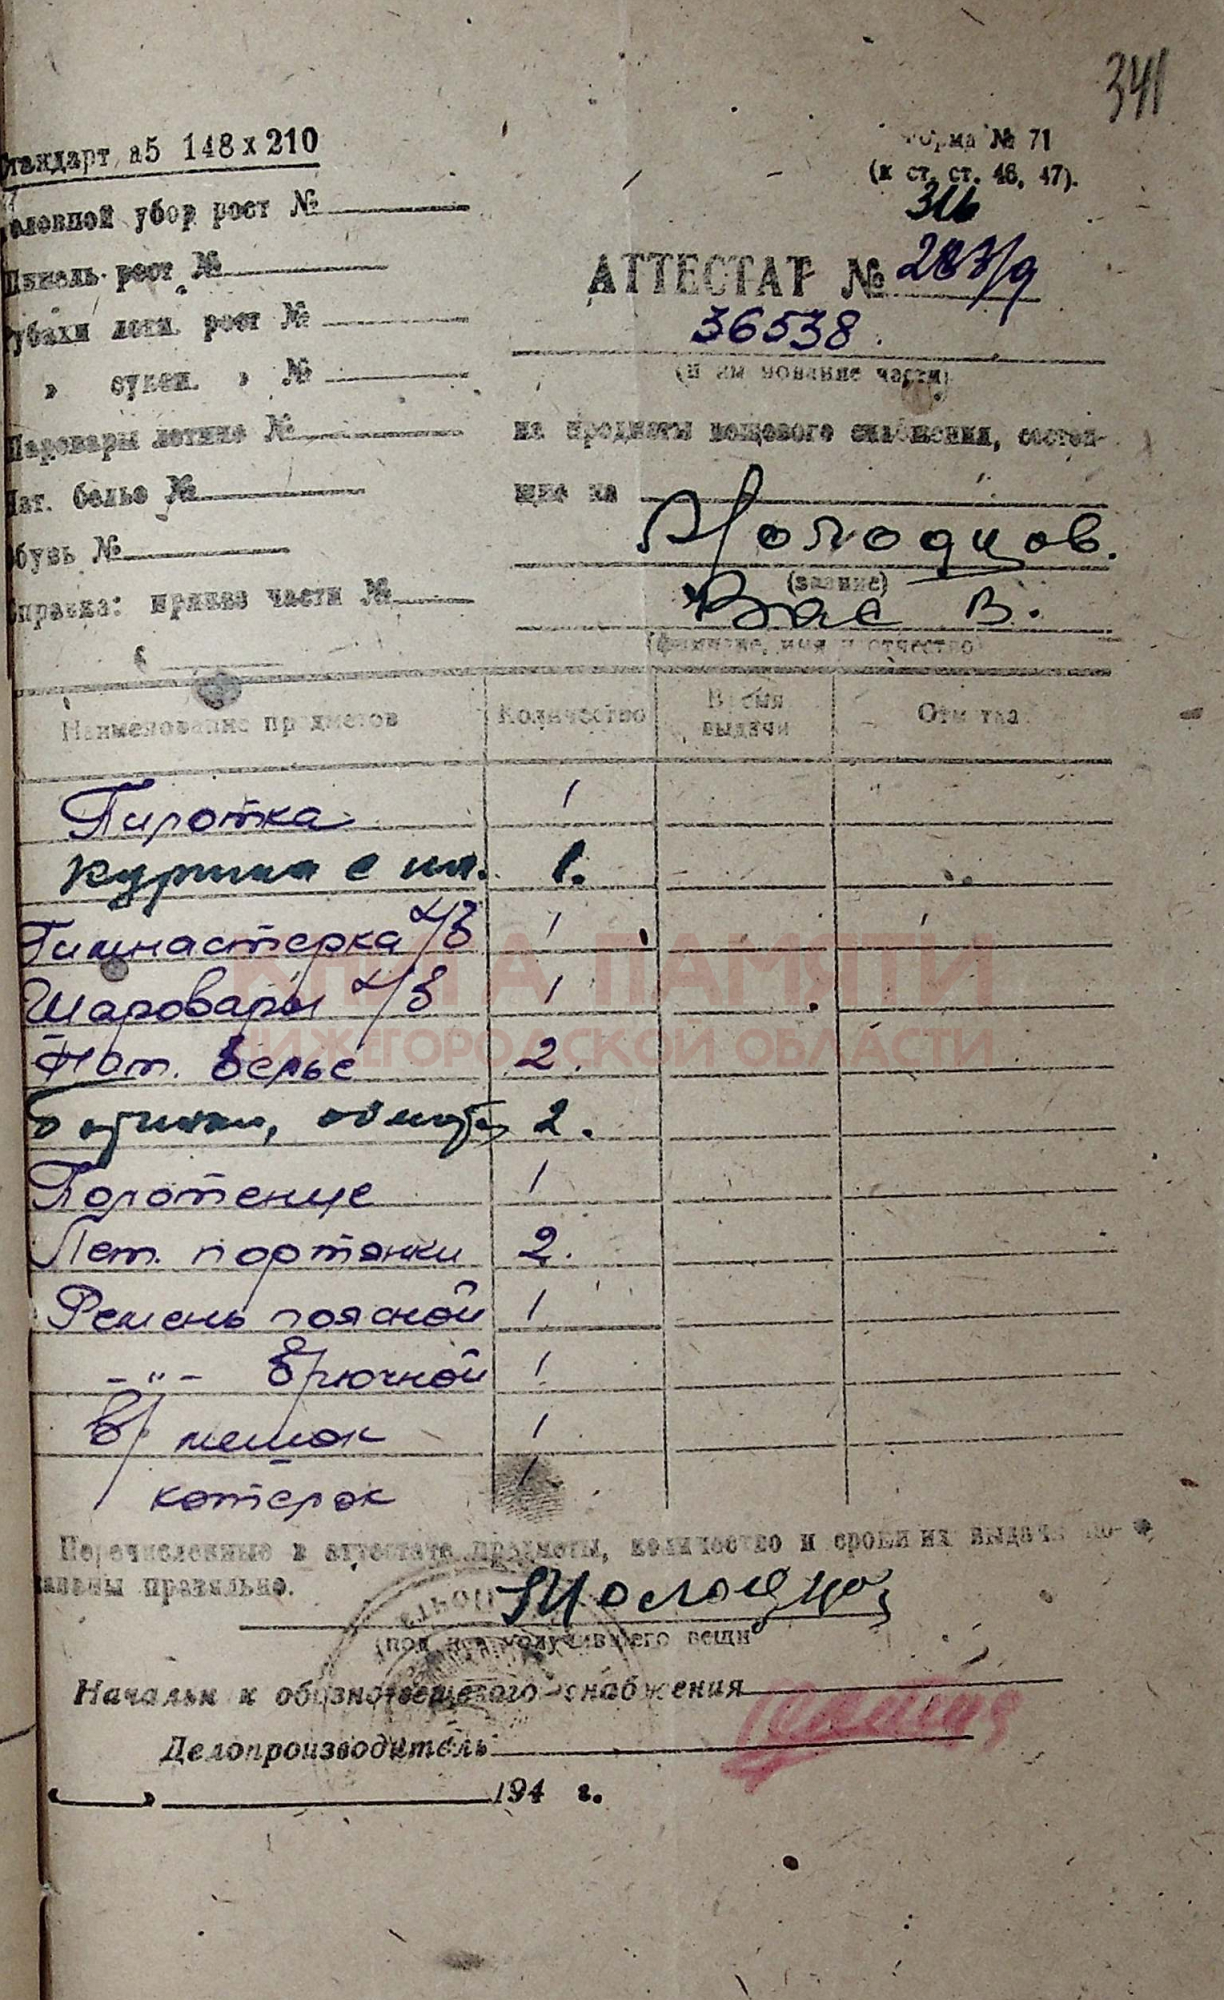 341
Стандарт а5 148х210
Форма № 71
(к ст. ст. 46, 47).
Головной убор рост №
316
Шинель рост №
АТТЕСТАТ № 283/д
Рубахи летн. рост №
36538.
" сукон. " №
(наименование части)
Шаровары летние №
на предметы вещевого снабжения, состоя-
Нат. белье №
щие на
Молодцов.
Обувь №
(звание)
Справка: приказ части №
Вас В.
(фамилие, имя и отчество)
Наименование предметов Количество Время выдачи Отметка
Пилотка 1
Куртка с 1.
Гимнастерка х/б 1
Шаровары х/б 1
Нат. белье 2.
Ботинки, обмот 2.
Полотенце 1
Лет. портянки 2.
Ремень поясной 1
-"- брючной 1
в/мешок 1
котелок 1
Перечисленные в аттестате предметы, количество и сроки их выдачи по-
казаны правильно.
Молодцов
(подпись получившего вещи
Начальник обозно-вещевого снабжения
Делопроизводитель
" " 194 г.
КНИГА ПАМЯТИ
НИЖЕГОРОДСКОЙ ОБЛАСТИ